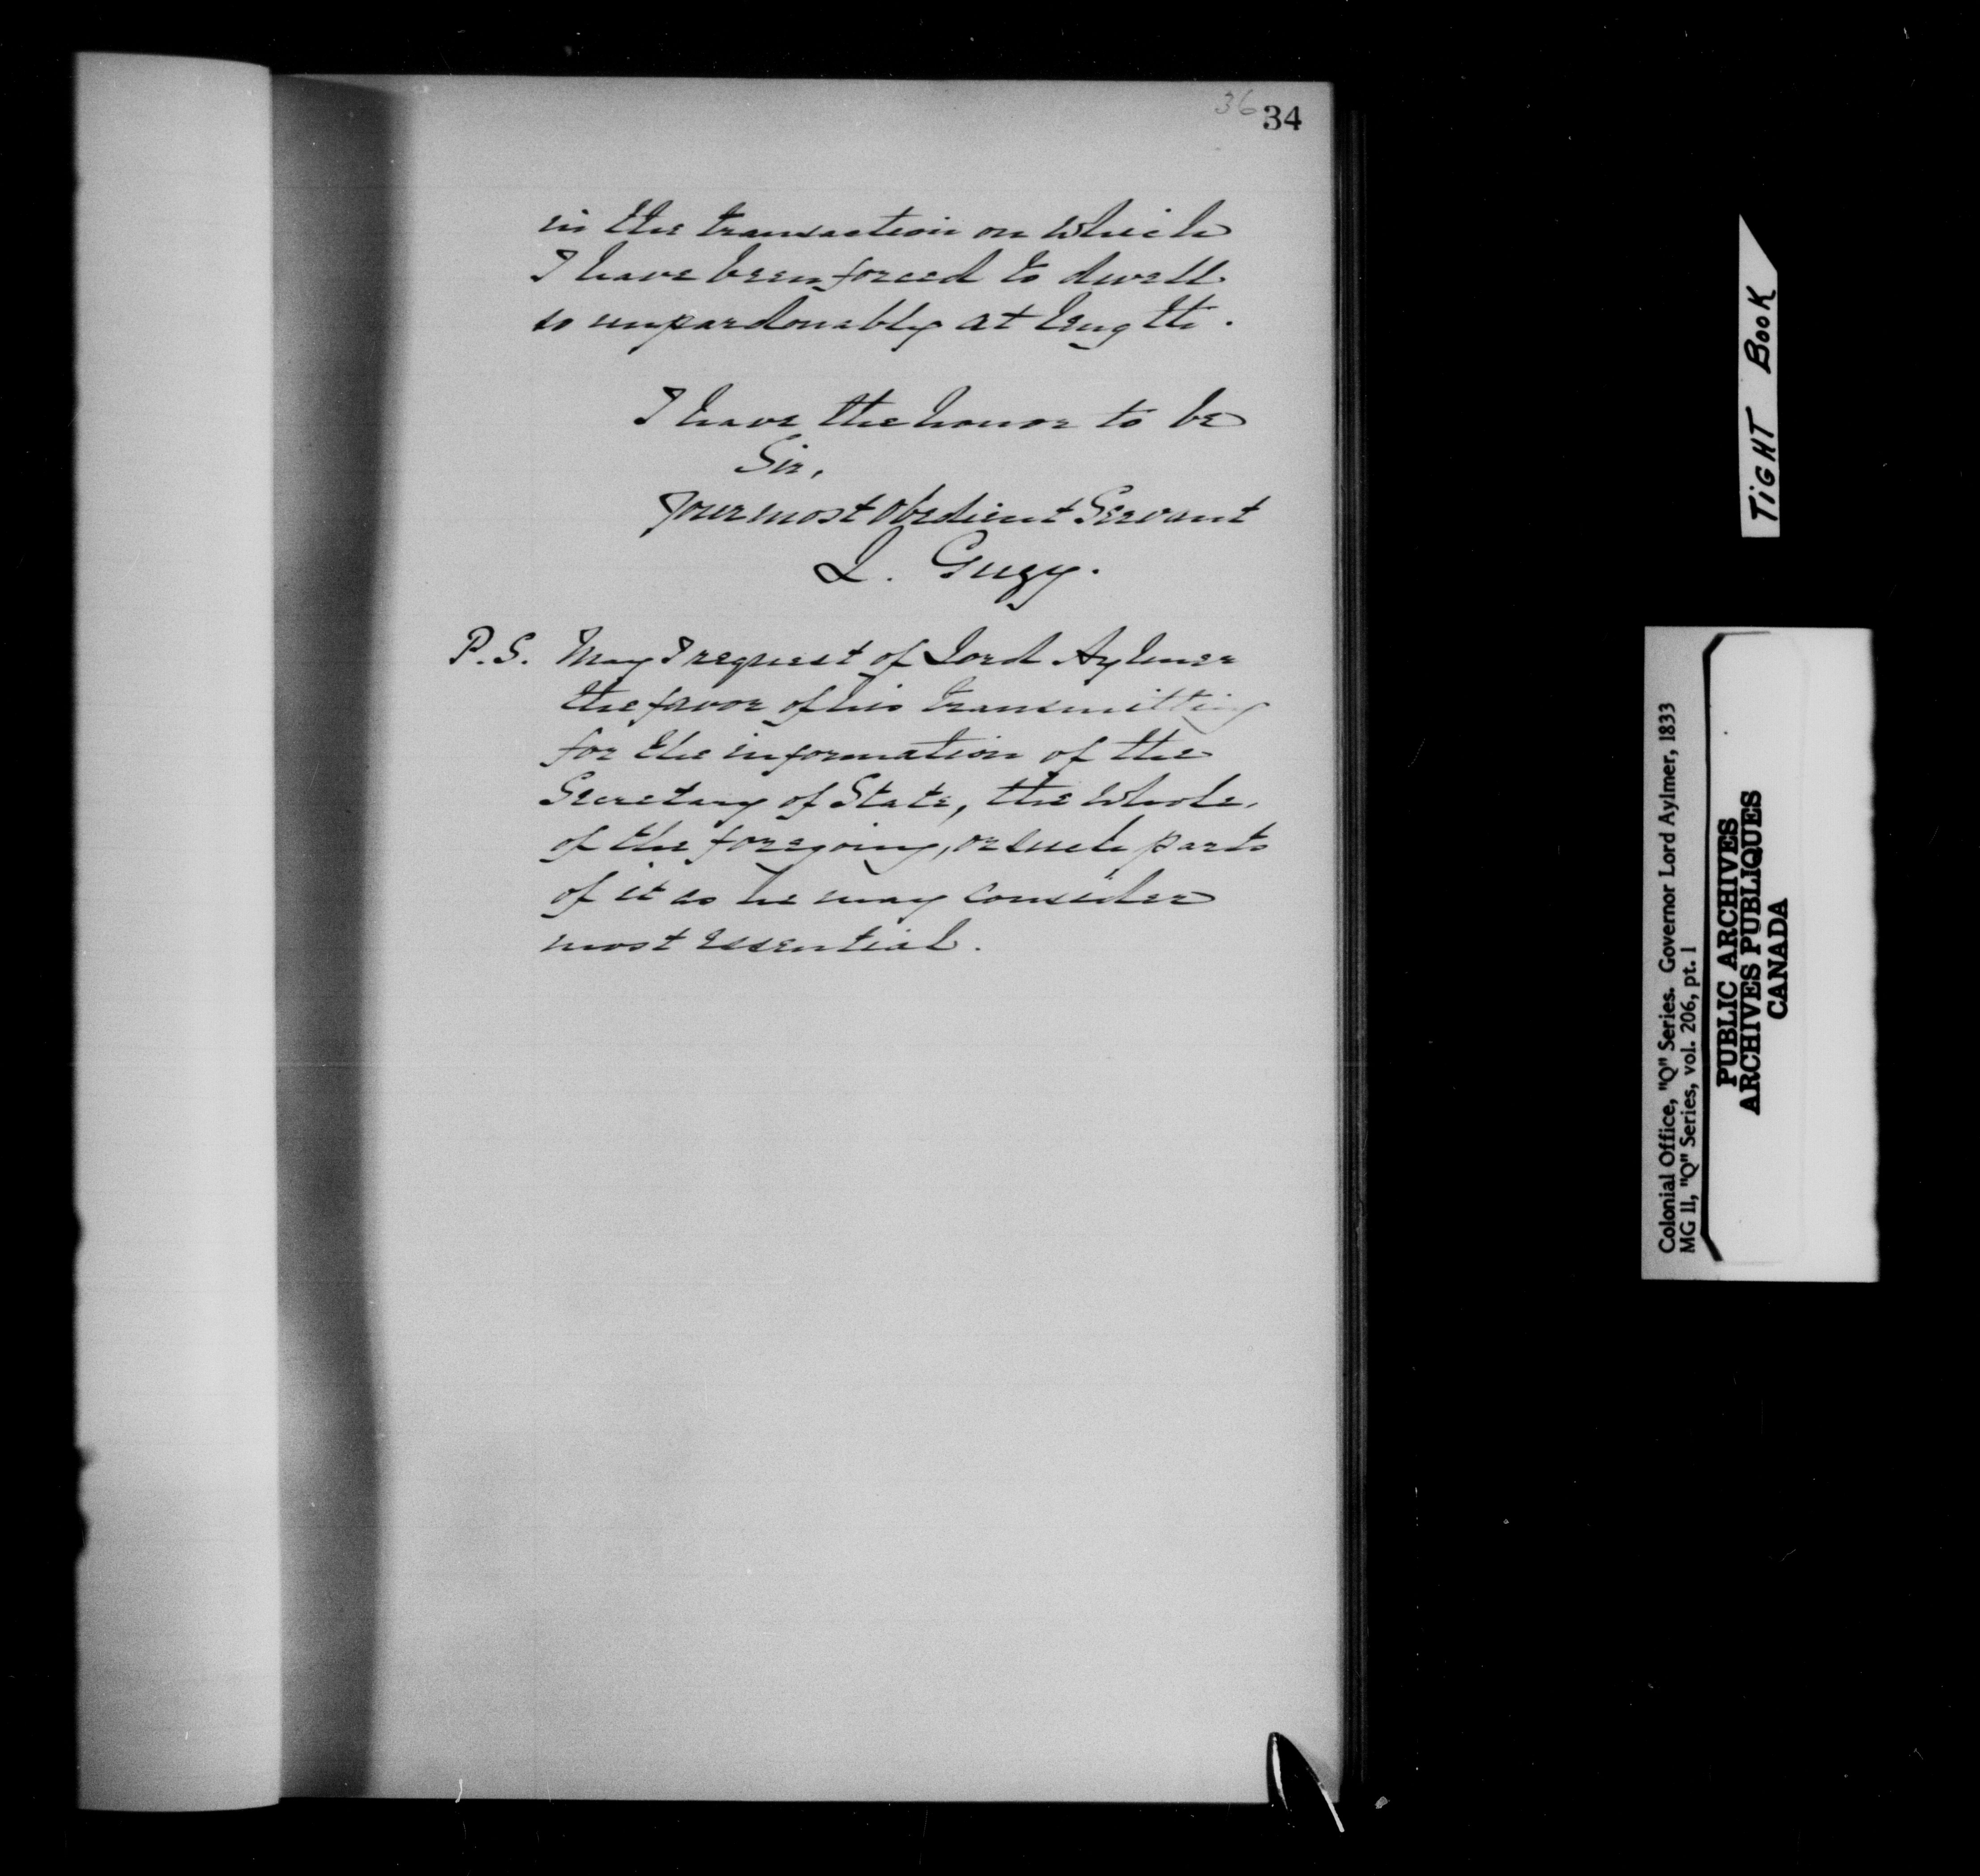 36 34
in the transaction on which
I have been forced to dwell
so unpardonably at length.
I have the honor to be
Sir,
Your most obedient Servant
L. Gugy.
P.S. May I request of Lord Aylmer
the favor of his transmitting
for the information of the
Secretary of State, the whole,
of the foregoing, or such parts
of it as he may consider
most essential.
TIGHT BOOK
Colonial Office, "Q" Series. Governor Lord Aylmer, 1833
MG 11, "Q" Series, vol. 206, pt. 1
PUBLIC ARCHIVES
ARCHIVES PUBLIQUES
CANADA